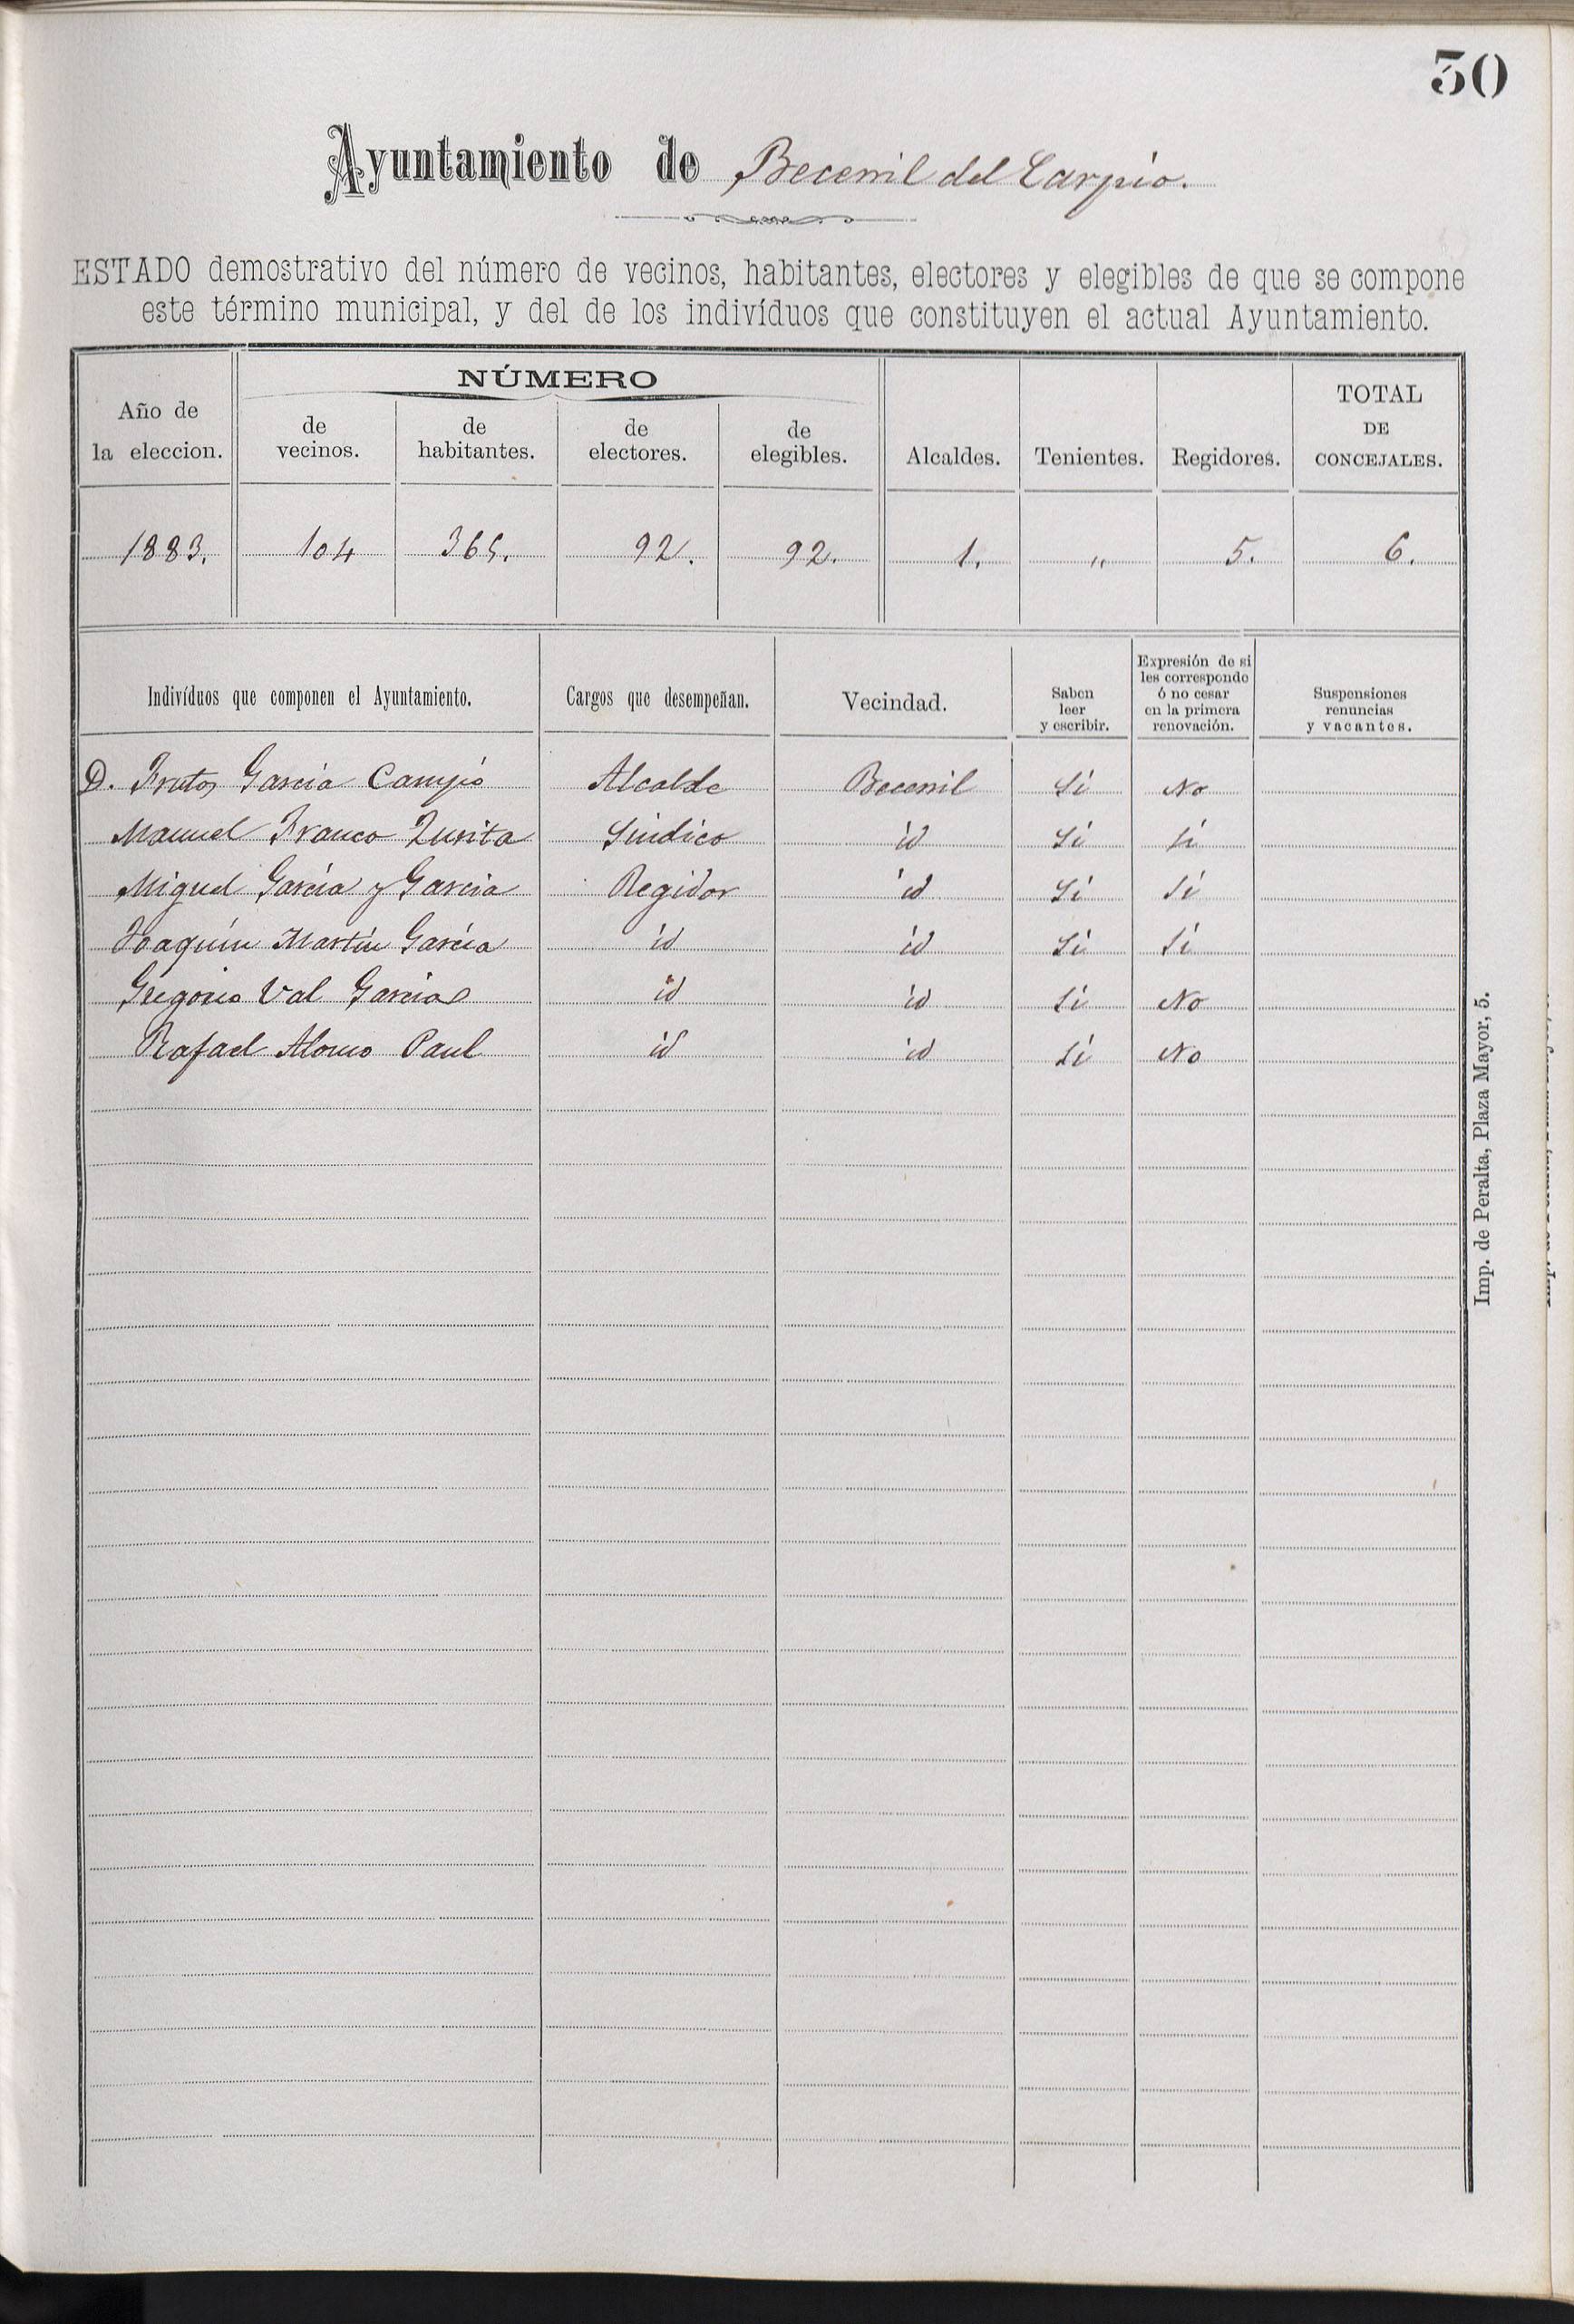 30
Ayuntamiento de Becerril del Carpio.
ESTADO demostrativo del número de vecinos, habitantes, electores y elegibles de que se compone
este término municipal, y del de los indivíduos que constituyen el actual Ayuntamiento.
Año de la eleccion. NÚMERO de vecinos. de habitantes. de electores. de elegibles. Alcaldes. Tenientes. Regidores. TOTAL DE CONCEJALES.
1883. 104 365. 92. 92. 1. " 5. 6.
Indivíduos que componen el Ayuntamiento. Cargos que desempeñan. Vecindad. Saben leer y escribir. Expresión de si les corresponde ó no cesar en la primera renovación. Suspensiones renuncias y vacantes.
D. Frutos García Campo Alcalde Becerril Sí No
Manuel Franco Zurita Síndico id Sí Sí
Miguel García y García Regidor id Sí Sí
Joaquín Martín García id id Sí Sí
Gregorio Val García id id Sí No
Rafael Alonso Paul id id Sí No
Imp. de Peralta, Plaza Mayor, 5.